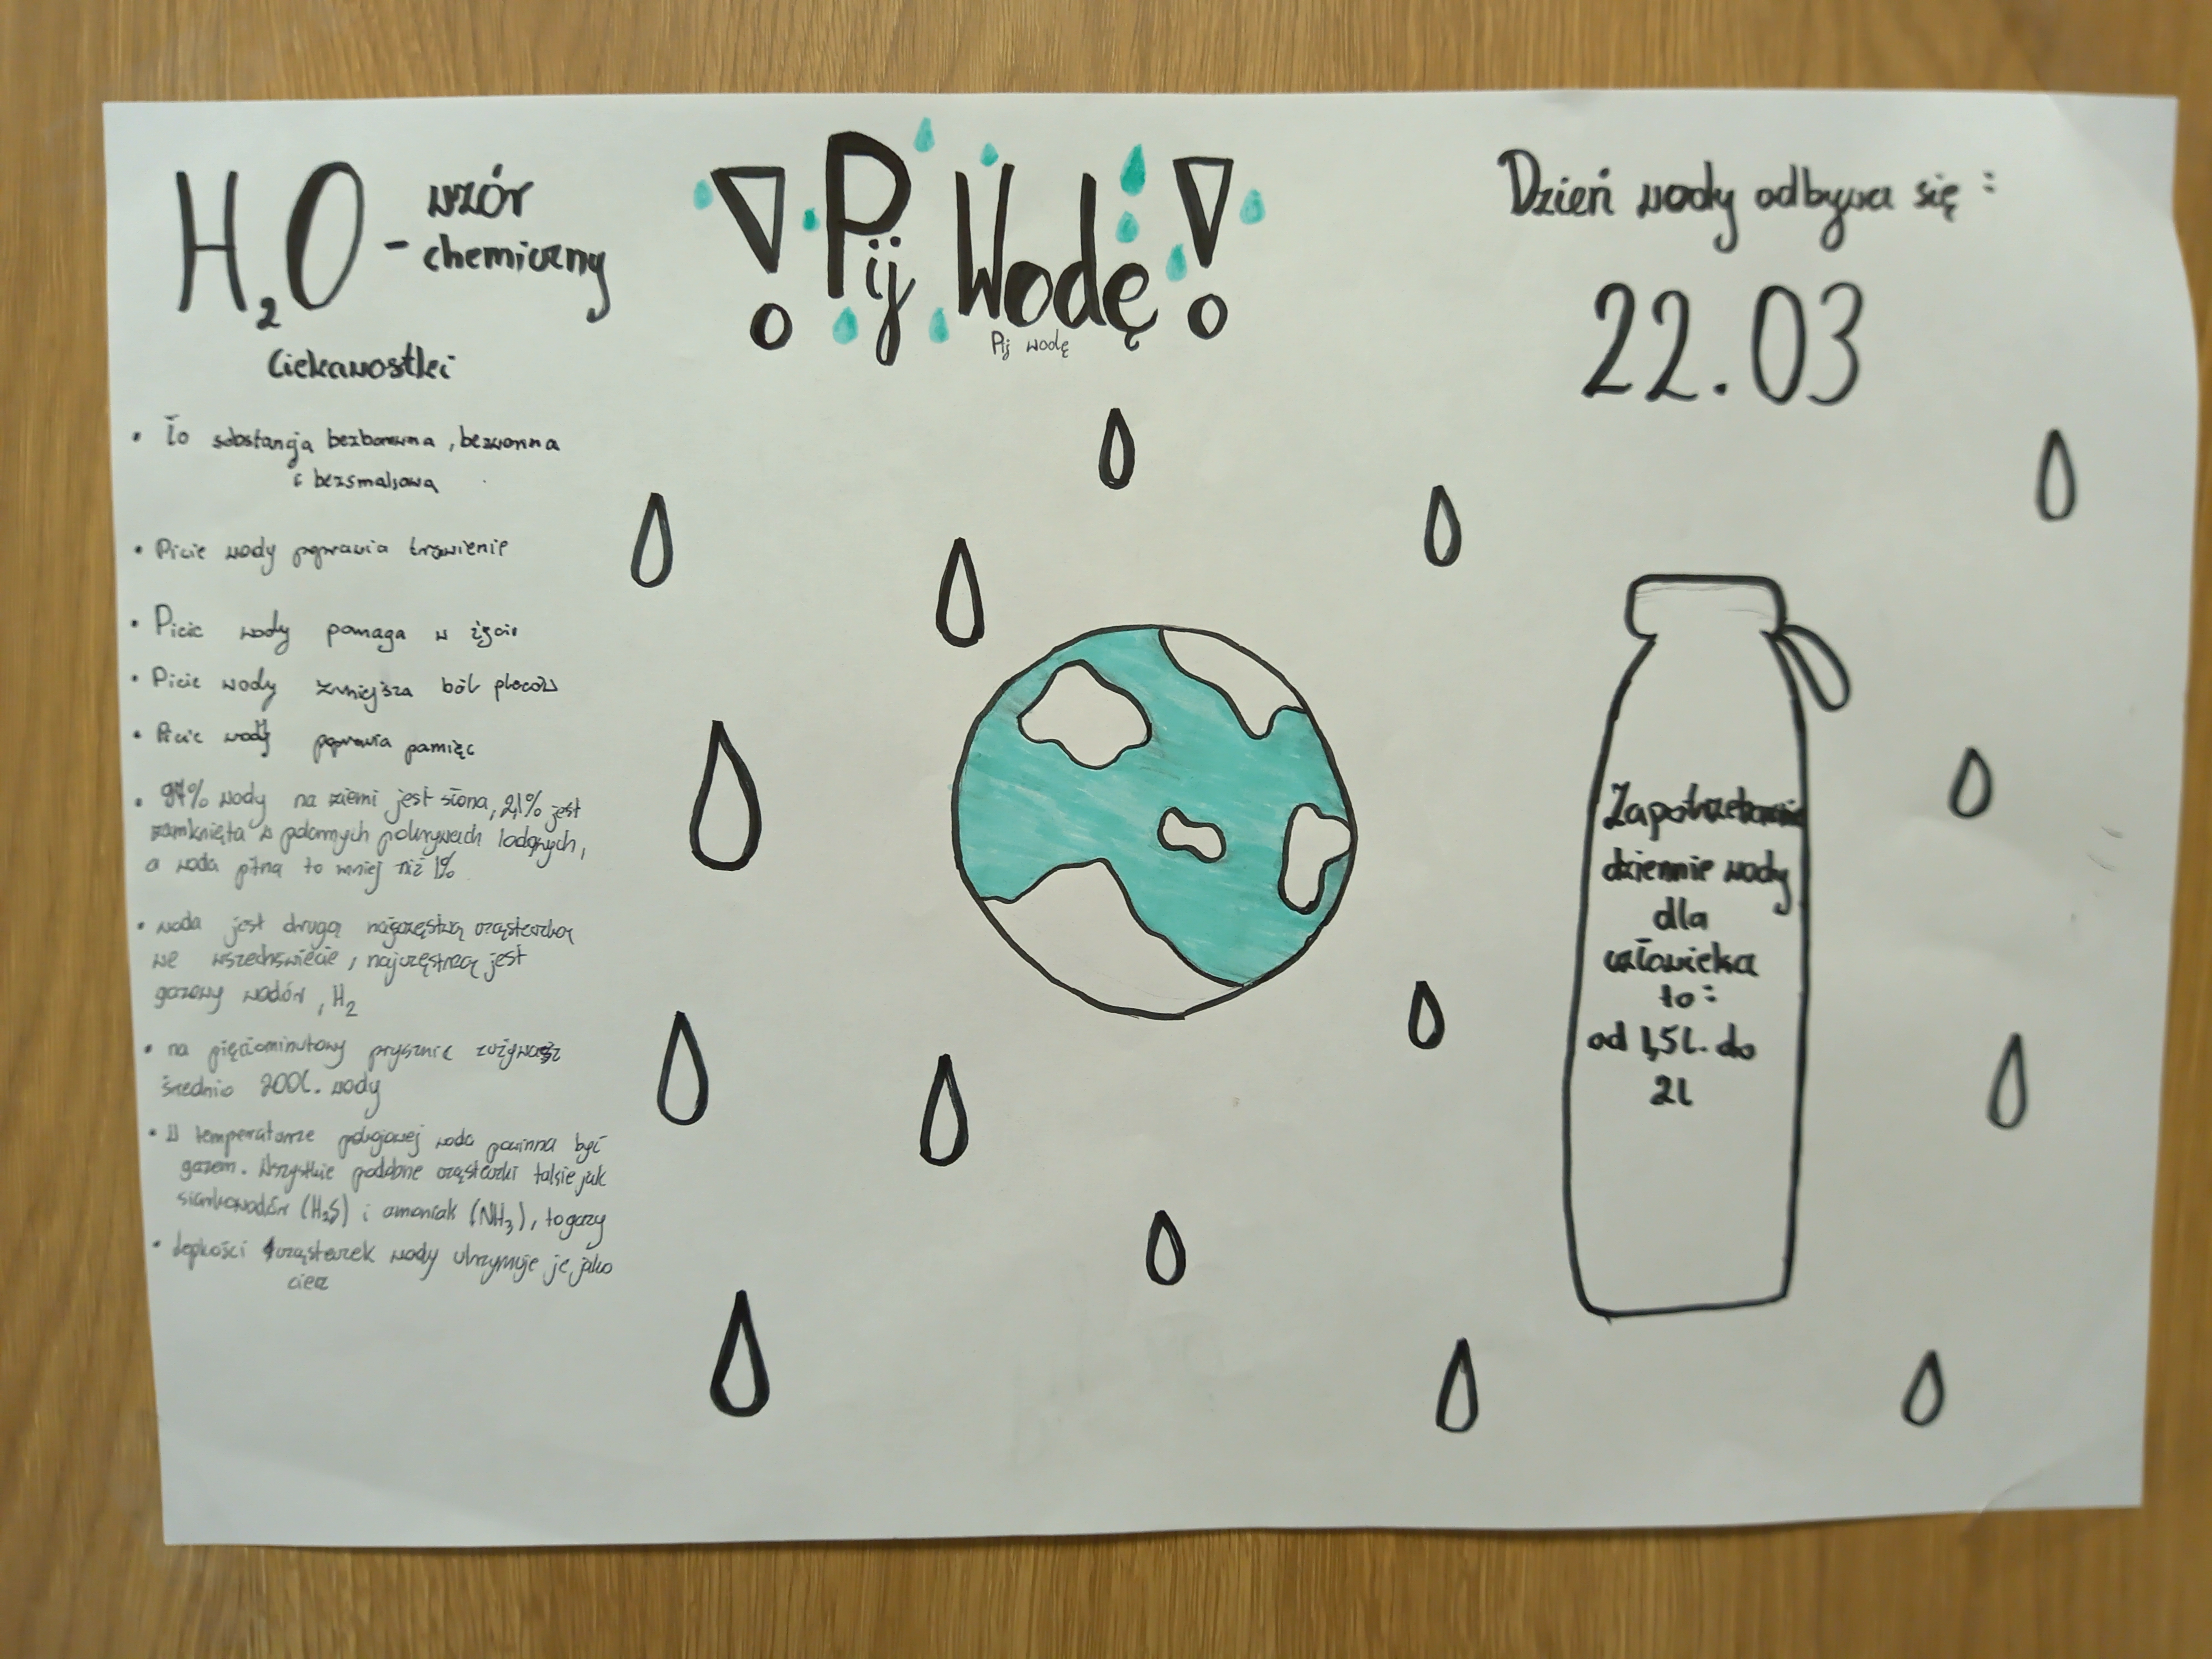 H₂O - wzór
chemiczny
Ciekawostki
• To substancja bezbarwna, bezwonna
i bezsmakowa
• Picie wody poprawia trawienie
• Picie wody pomaga w życiu
• Picie wody zmniejsza ból pleców
• Picie wody poprawia pamięć
• 97% wody na ziemi jest słona, 2,1% jest
zamknięta w polarnych pokrywach lodowych,
a woda pitna to mniej niż 1%
• woda jest drugą najczęstszą cząsteczką
we wszechświecie, najczęstszą jest
gazowy wodór, H₂
• na pięciominutowy prysznic zużywasz
średnio 200l. wody
• W temperaturze pokojowej woda powinna być
gazem. Wszystkie podobne cząsteczki takie jak
siarkowodór (H₂S) i amoniak (NH₃), to gazy
• lepkości cząsteczek wody utrzymuje je jako
ciecz
! Pij Wodę !
Pij wodę
Dzień wody odbywa się :
22.03
Zapotrzebowanie
dziennie wody
dla
człowieka
to:
od 1,5l. do
2l